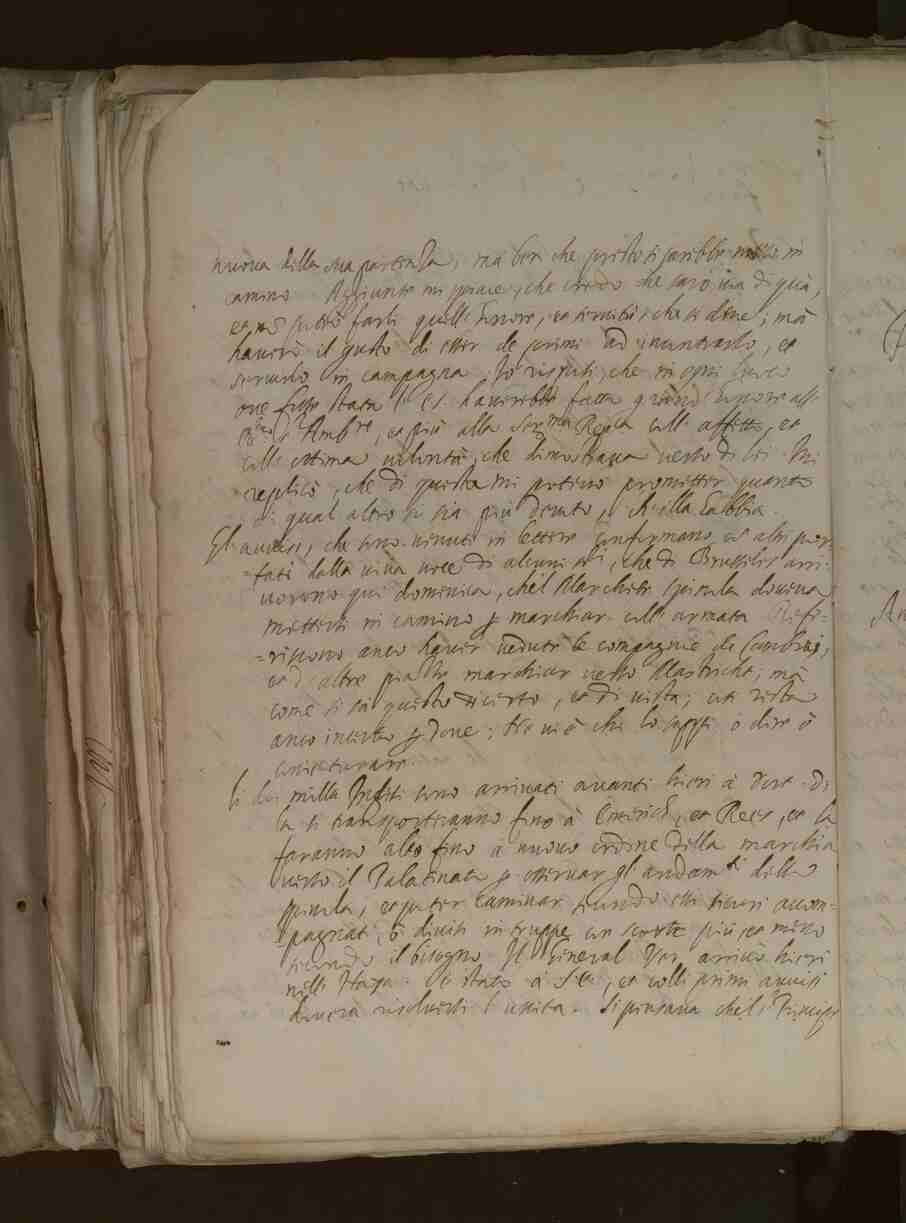 nuova della sua partenza, ma ben che presto si sarebbe messo in
camino. Aggiunse mi spiace, che credo che sarò via di quà,
et non potrò farli quell'honore, et servitù che si deve; mà
haverò il gusto di esser de primi ad incontrarlo, et
servirlo in campagna. Io risposi, che in ogni luoco
ove fusse stata l' haverebbe fatto grand' honore all'
Amb.re, et più alla Ser.ma Rep.ca coll'affetto, et
coll'ottima volontà, che dimostrava verso di lei. Mi
replicò, che di questa mi potevo prometter quanto
di qual altro si sia più devoto, ch'ella habbia.
Gl'avvisi, che sono venuti in lettere confermano et altri por-
tati dalla viva voce di alcuni, che di Brusselles arri-
vorono qui domenica, che'l Marchese Spinola doveva
mettersi in camino per marchiar coll'armata. Refe-
-riscono anco haver vedute le compagnie de
et d'altre piazze marchiar verso Mastricht; mà
come si sà questo di certo, et di vista; così resta
anco incerto per dove; ne vi è chi lo sappi ò dire ò
conietturare.
li doi milla Inglesi sono arrivati avanti hieri à Dort. Di
la si transporteranno fino à Emerich, et Rees, et la
faranno alto fino a nuovo ordine della marchia
verso il Palatinato per osservar gl'andam.ti dello
Spinola, et poter caminar secondo essi sicuri accom-
pagnati, ò divisi in truppe con scorte più et meno
secondo il bisogno. Il General Ver arrivò hieri
nell'Haya. È stato à S.E., et colli primi avvisi
doverà risolversi l'uscita. Si pensava che'l s.r Principe